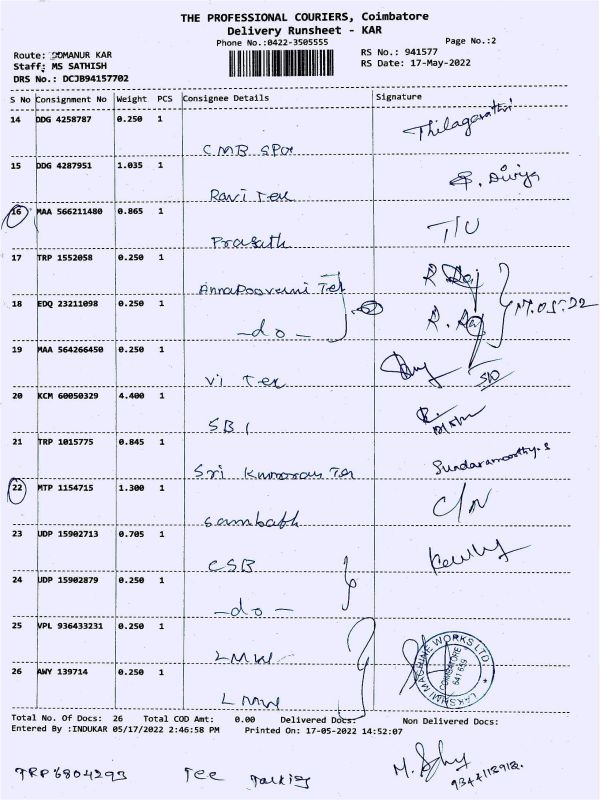 THE PROFESSIONAL COURIERS, Coimbatore
Delivery Runsheet - KAR
Phone No.:0422-3505555
Page No.:2
Route: SOMANUR KAR
RS No.: 941577
Staff: MS SATHISH
RS Date: 17-May-2022
DRS No.: DCJB94157702
S No Consignment No Weight PCS Consignee Details Signature
14 DDG 4258787 0.250 1 Thilagavathi
CMB SPOT
15 DDG 4287951 1.035 1 S. Divya
Ravi Tex
16 MAA 566211480 0.865 1 T/U
Prasath
17 TRP 1552058 0.250 1 R. Raj
Annapoorani Tex
17.05.22
18 EDQ 23211098 0.250 1 R. Raj
-do-
19 MAA 564266450 0.250 1
Vi Tex
20 KCM 60050329 4.400 1
SBI
21 TRP 1015775 0.845 1 Sundaramoorthy.S
Sri Kumaran Tex
22 MTP 1154715 1.300 1 C/N
Sambath
23 UDP 15902713 0.705 1
CSB
24 UDP 15902879 0.250 1
-do-
25 VPL 936433231 0.250 1
LMW
LAKSHMI MACHINE WORKS LTD.
COIMBATORE
641 659
26 AWY 139714 0.250 1
LMW
Total No. Of Docs: 26 Total COD Amt: 0.00 Delivered Docs: Non Delivered Docs:
Entered By :INDUKAR 05/17/2022 2:46:58 PM Printed On: 17-05-2022 14:52:07
TRP 6804293 Tee